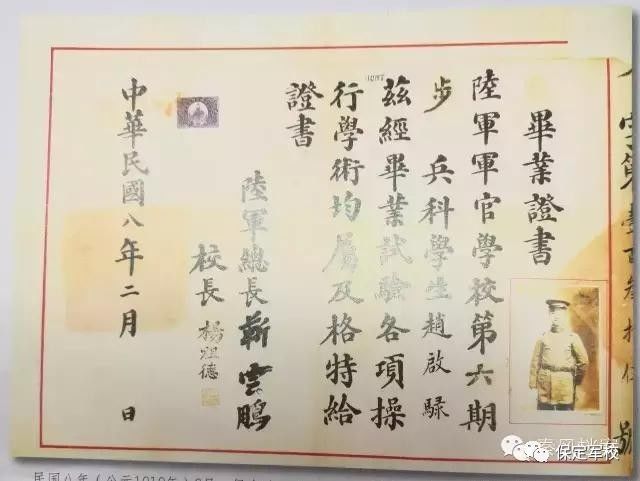 畢業證書
陸軍軍官學校第六期
步兵科學生趙啟騄
茲經畢業試驗各項操
行學術均屬及格特給
證書
陸軍總長靳雲鵬
校長楊祖德
中華民國八年二月 日
保定军校